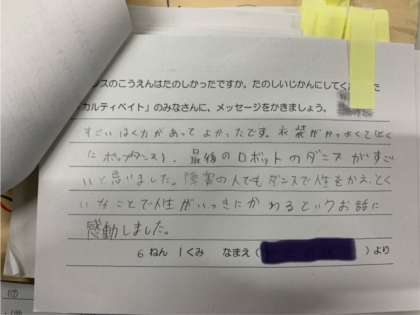 ンスのこうえんはたのしかったですか。たのしいじかんにしてく
カルティベイト」のみなさんに、メッセージをかきましょう。
すごいはく力があってよかったです。衣装がかっこよくて
たポップダンスと、最後のロボットのダンスがすご
いと思いました。障害の人でもダンスで人生をかえ、とく
いなことで人生がいっきにかわるというお話に
感動しました。
6 ねん 1 くみ なまえ ( ) より